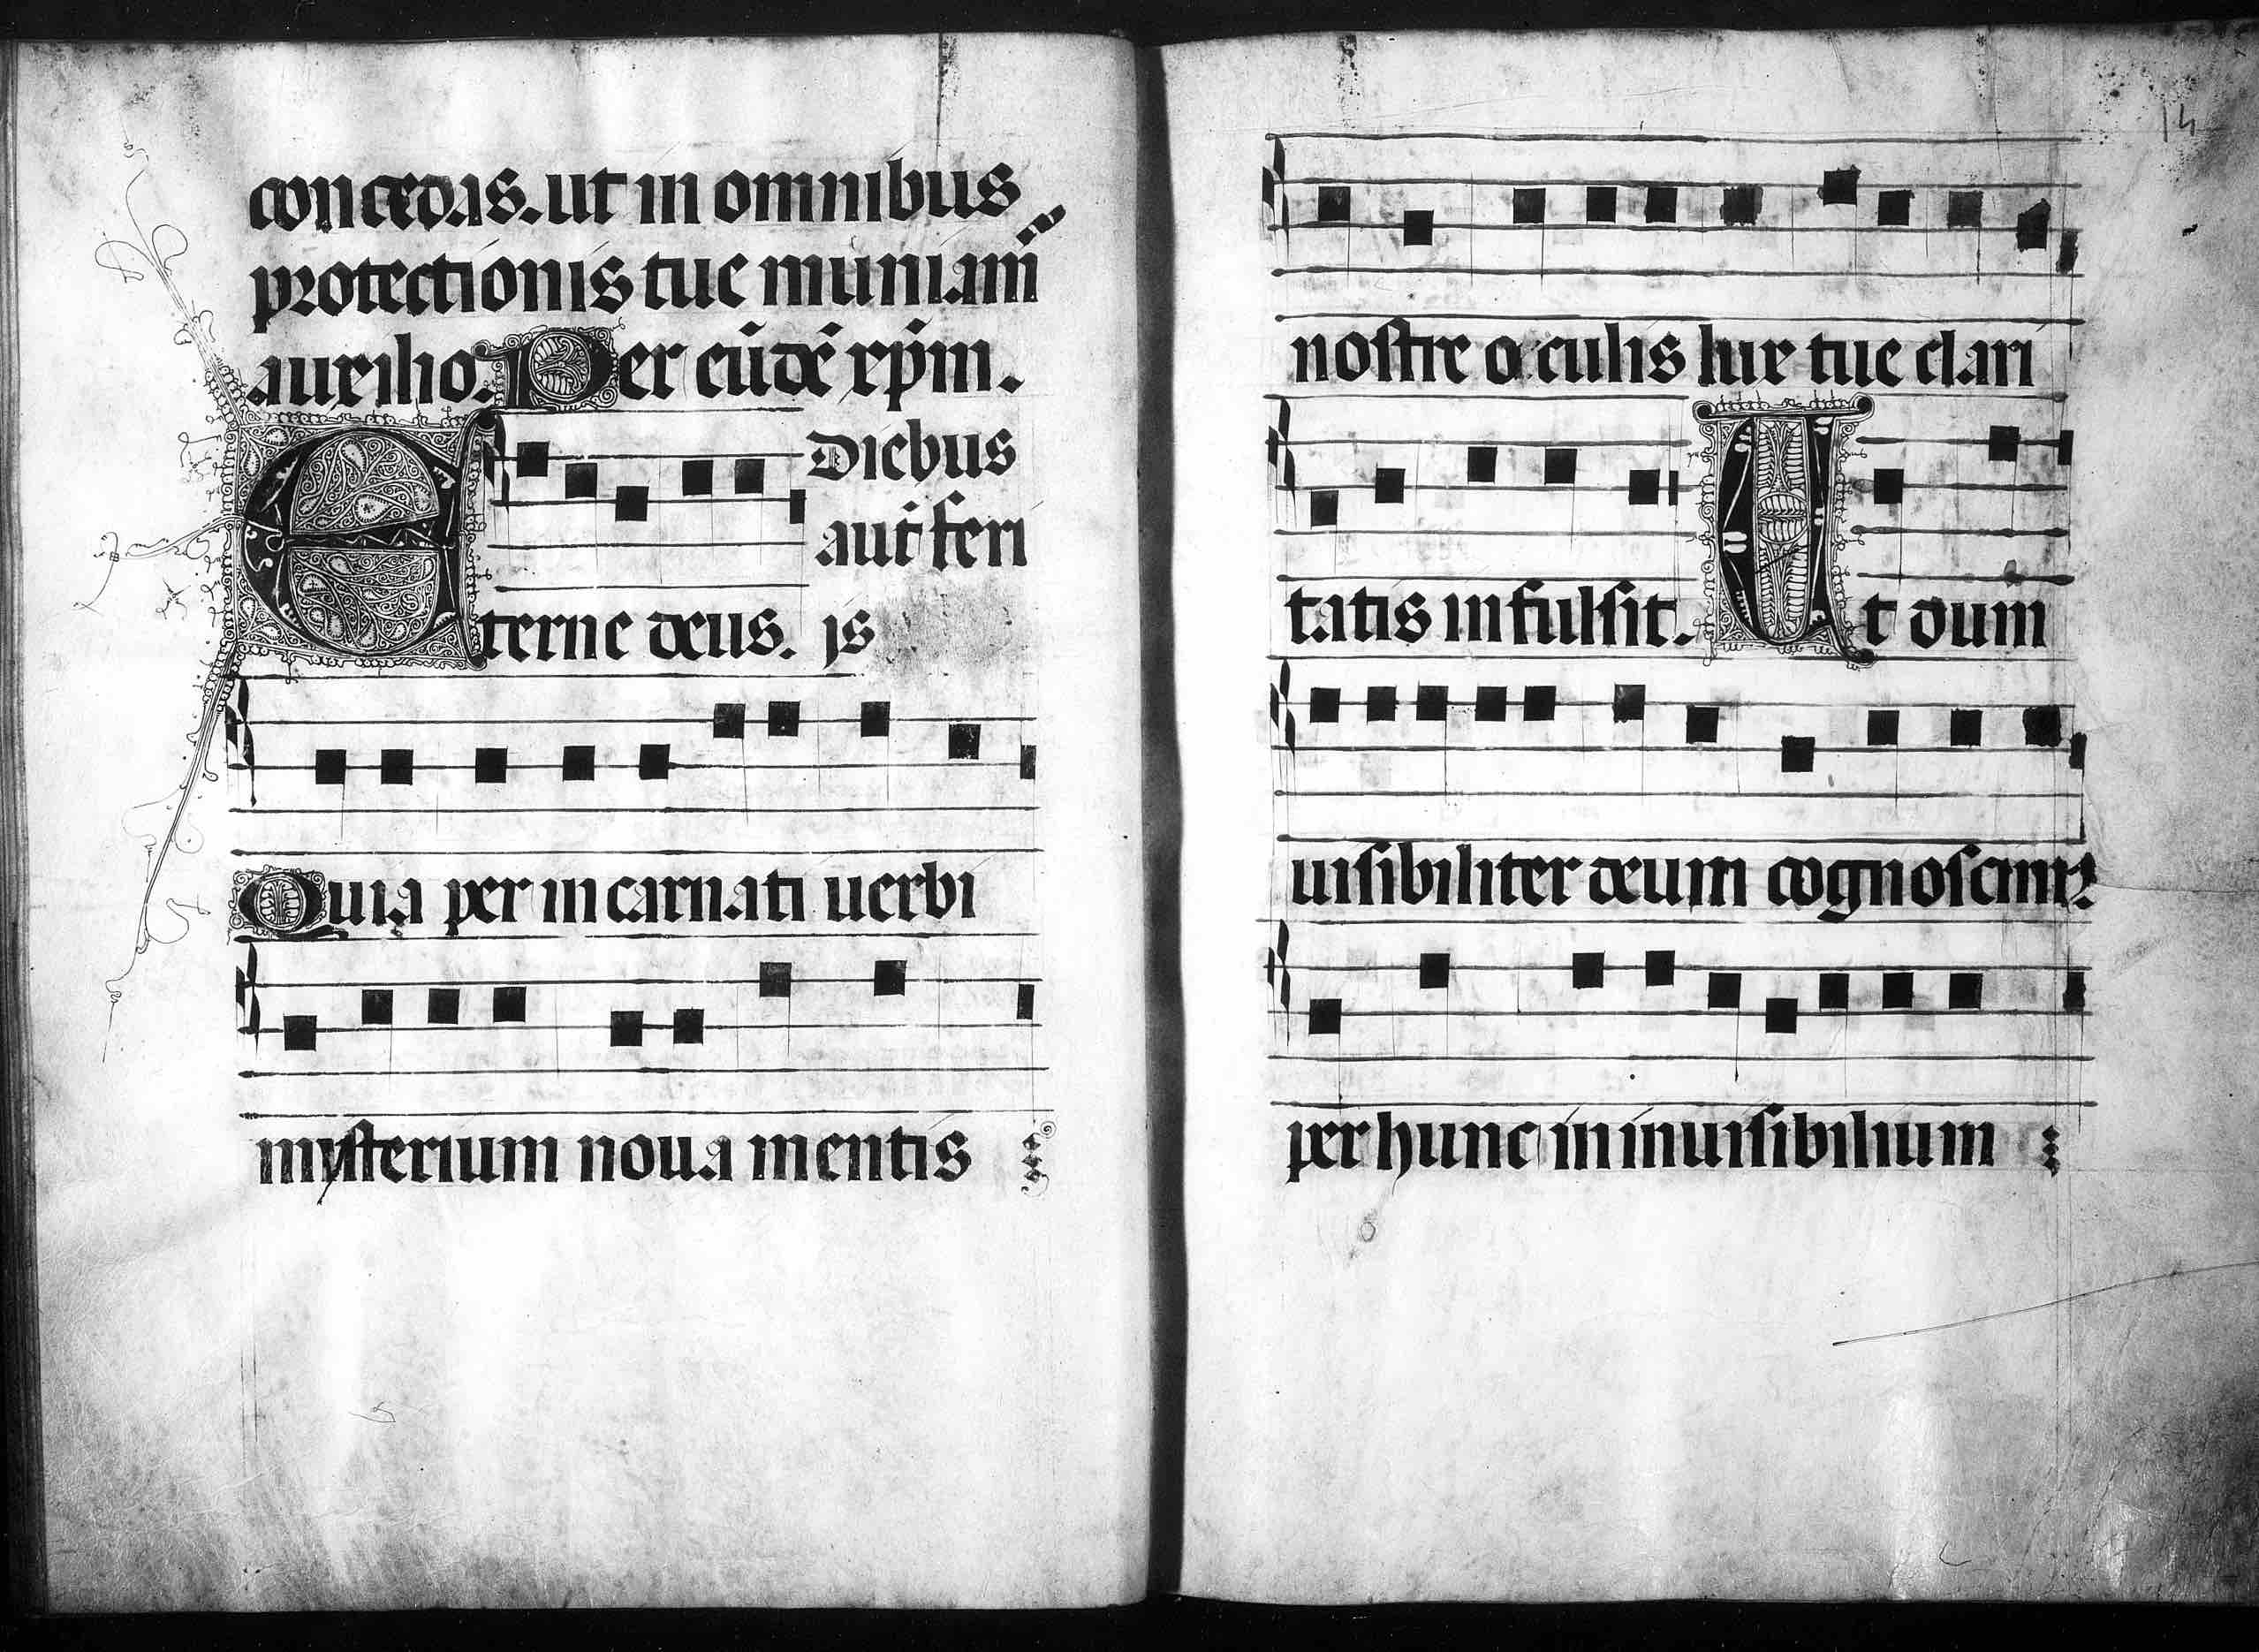 concedas. ut in omnibus
protectionis tue muniam̃
auxilio. Per eũdẽ xp̃m.
Diebus
aut̃ feri
Eterne deus. is
Quia per incarnati uerbi
mysterium noua mentis
14
nostre oculis lux tue clari
tatis infulsit. Ut dum
uisibiliter deum cognoscimꝰ
per hunc in inuisibilium